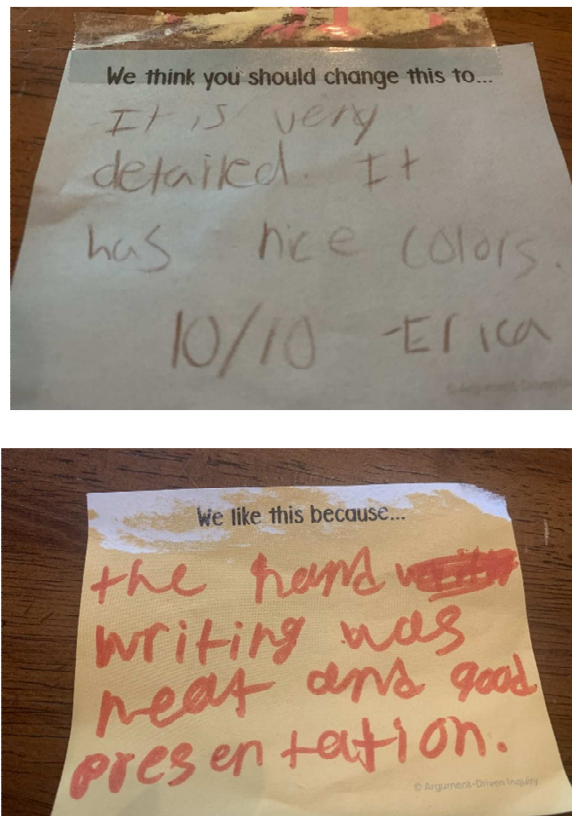 We think you should change this to...
It is very
detailed. It
has nice colors.
10/10 -Erica
We like this because...
the hand
writing was
neat and good
presentation.
© Argument-Driven Inquiry